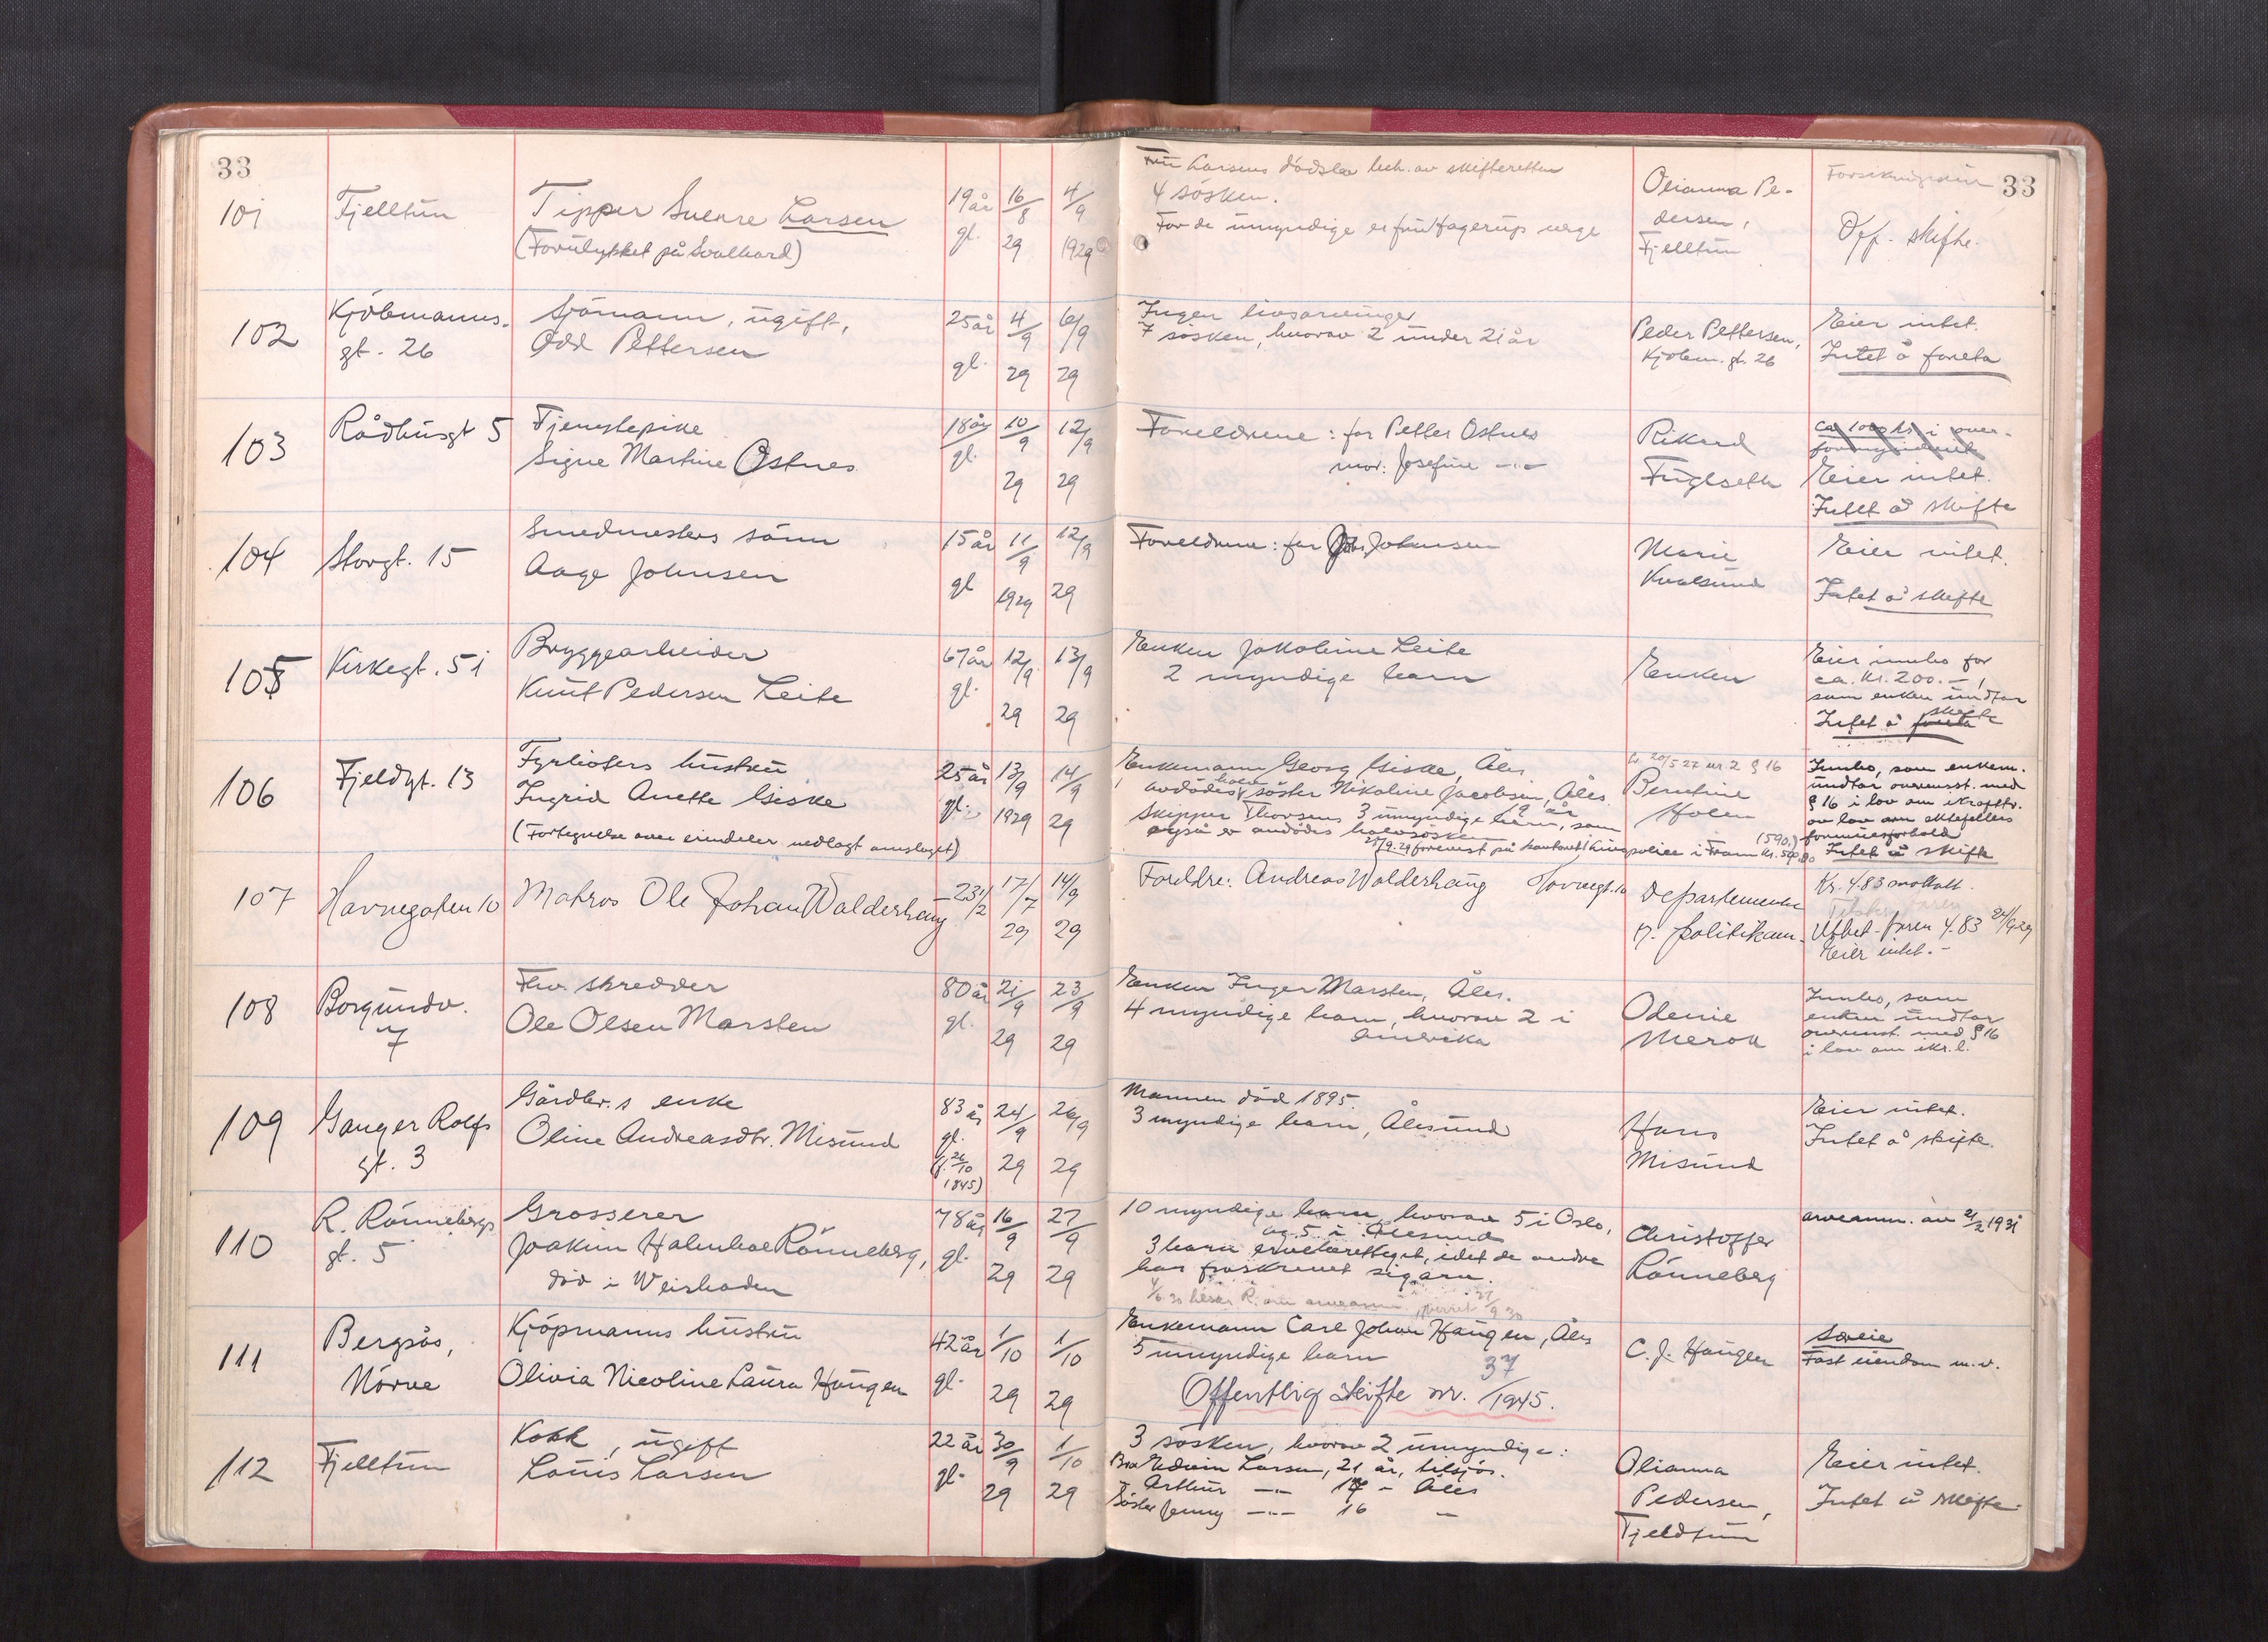 33
33
101
Fjelltun
Tipper Sverre Larsen
(Forulykket på Svalbard)
19 år
gl.
16/8
29
4/9
1929
Fru Larsens dödsbo beh. av skifteretten
4 sösken.
For de umyndige er fru Hagerup verge
Olianna Pe-
dersen,
Fjelltun
Off. skifte.
102
Kjöbmanns-
gt. 26
Sjömann, ugift,
Odd Pettersen
25 år
gl.
4/9
29
6/9
29
Ingen livsarvinger
7 sösken, hvorav 2 under 21 år
Peder Pettersen,
Kjöbm. gt. 26
Eier intet.
Intet å foreta
103
Rådhusgt 5
Tjenestepike
Signe Martine Ostnes
18 år
gl.
10/9
29
12/9
29
Foreldrene: far Petter Ostnes
mor: Josefine -"-
Rikard
Fuglseth
ca 1000 kr i over-
formynderiet
Eier intet.
Intet å skifte
104
Storgt. 15
Smedmesters sönn
Aage Johnsen
15 år
gl
11/9
1929
12/9
29
Foreldrene: far Johnsen
Marie
Kvalsund
Eier intet.
Intet å skifte
105
Kirkegt. 51
Bryggearbeider
Knut Pedersen Leite
67 år
gl.
12/9
29
13/9
29
Enken Jakobine Leite
2 myndige barn
Enken
Eier innbo for
ca. kr. 200.-,
som enken undtar
Intet å foreta skifte
106
Fjeldgt. 13
Fyrböters hustru
Ingrid Anette Giske
(Fortegnelse over eiendeler nedlagt omslaget)
25 år
gl.
13/9
1929
14/9
29
Enkemann Georg Giske, Åles.
avdödes halv söster Nikoline Jacobsen, Åles. 19 år
Skipper Thorsens 3 umyndige barn, som
også er avdödes halvsösken
25/9.29 forevist på kontoret livspolice i Fram kr. 500,00 (590.)
L. 20/5 27 nr. 2 § 16
Berntine
Holen
Innbo, som enkem.
undtar overensst. med
§ 16 i lov om ikrafttr.
av lov om ektefellers
formuesforhold
Intet å skifte
107
Havnegaten 10
Matros Ole Johan Walderhaug
23 1/2
17/7
29
14/9
29
Foreldre: Andreas Walderhaug Havnegt. 10
Departementet
n. politikam.
Kr. 4.83 mottatt.
Utbet. faren 4.83 24/9 29
Eier intet.-
108
Borgundv.
7
Fhv. skredder
Ole Olsen Marsten
80 år
gl.
21/9
29
23/9
29
Enken Inger Marsten, Åles.
4 myndige barn, hvorav 2 i
Amerika
Odenie
Merok
Innbo, som
enken undtar
overenst. med § 16
i lov om ikr. l.
109
Ganger Rolfs
gt. 3
Gårdbr.s enke
Oline Andreasdtr. Misund
83 år
gl.
(f. 26/10
1845)
24/9
29
26/9
29
Mannen död 1895.
3 myndige barn, Ålesund
Hans
Misund
Eier intet.
Intet å skifte.
110
R. Rönnebergs
gt. 5
Grosserer
Joakim Holmboe Rönneberg,
död i Weisbaden
78 år
gl.
16/9
29
27/9
29
10 myndige barn, hvorav 5 i Oslo,
og 5 i Ålesund
3 barn arveberettiget, idet de andre
har fraskrevet sig arv.
Christoffer
Rönneberg
arveanm. av 21/2 1931
111
Bergsås,
Nörve
Kjöpmanns hustru
Olivia Nicoline Laura Haugen
42 år
gl.
1/10
29
1/10
29
Enkemann Carl Johan Haugen, Åles
5 umyndige barn
Offentlig skifte nr. 37/1945.
C. J. Haugen
Særeie
Fast eiendom m.v.
112
Fjelltun
Kokk, ugift
Louis Larsen
22 år
gl.
30/9
29
1/10
29
3 sösken, hvorav 2 umyndige:
Bror Edvin Larsen, 21 år, tilsjös.
Arthur -"- 17 - Åles
Söster Jenny -"- 16 -
Olianna
Pedersen,
Fjeldtun
Eier intet.
Intet å skifte.